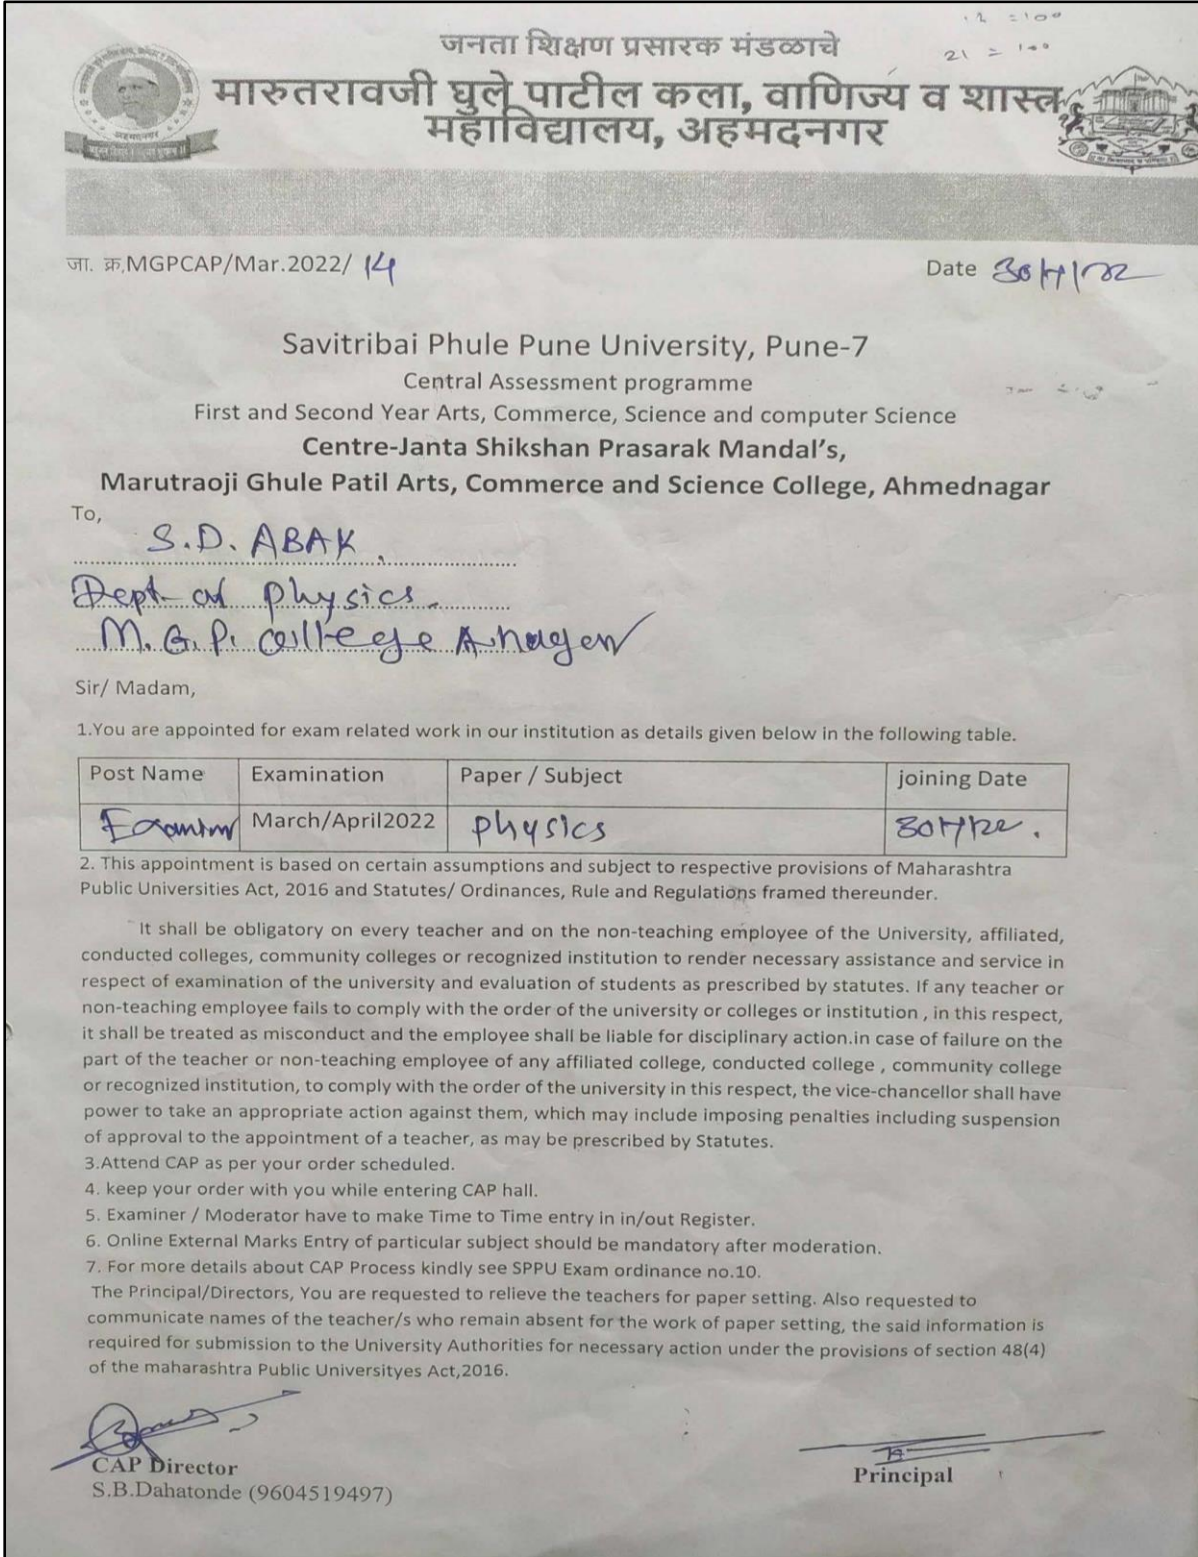 21 = 100
जनता शिक्षण प्रसारक मंडळाचे
मारुतरावजी घुले पाटील कला, वाणिज्य व शास्त्र
महाविद्यालय, अहमदनगर
अहमदनगर
जा. क्र.MGPCAP/Mar.2022/ 14
Date
Savitribai Phule Pune University, Pune-7
Central Assessment programme
First and Second Year Arts, Commerce, Science and computer Science
Centre-Janta Shikshan Prasarak Mandal's,
Marutraoji Ghule Patil Arts, Commerce and Science College, Ahmednagar
To,
S.D. ABAK
Dept of Physics
M.G.P. College
Sir/ Madam,
1.You are appointed for exam related work in our institution as details given below in the following table.
Post Name Examination Paper / Subject joining Date
March/April2022 Physics
2. This appointment is based on certain assumptions and subject to respective provisions of Maharashtra
Public Universities Act, 2016 and Statutes/ Ordinances, Rule and Regulations framed thereunder.
It shall be obligatory on every teacher and on the non-teaching employee of the University, affiliated,
conducted colleges, community colleges or recognized institution to render necessary assistance and service in
respect of examination of the university and evaluation of students as prescribed by statutes. If any teacher or
non-teaching employee fails to comply with the order of the university or colleges or institution , in this respect,
it shall be treated as misconduct and the employee shall be liable for disciplinary action.in case of failure on the
part of the teacher or non-teaching employee of any affiliated college, conducted college , community college
or recognized institution, to comply with the order of the university in this respect, the vice-chancellor shall have
power to take an appropriate action against them, which may include imposing penalties including suspension
of approval to the appointment of a teacher, as may be prescribed by Statutes.
3.Attend CAP as per your order scheduled.
4. keep your order with you while entering CAP hall.
5. Examiner / Moderator have to make Time to Time entry in in/out Register.
6. Online External Marks Entry of particular subject should be mandatory after moderation.
7. For more details about CAP Process kindly see SPPU Exam ordinance no.10.
The Principal/Directors, You are requested to relieve the teachers for paper setting. Also requested to
communicate names of the teacher/s who remain absent for the work of paper setting, the said information is
required for submission to the University Authorities for necessary action under the provisions of section 48(4)
of the maharashtra Public Universityes Act,2016.
CAP Director
S.B.Dahatonde (9604519497)
Principal